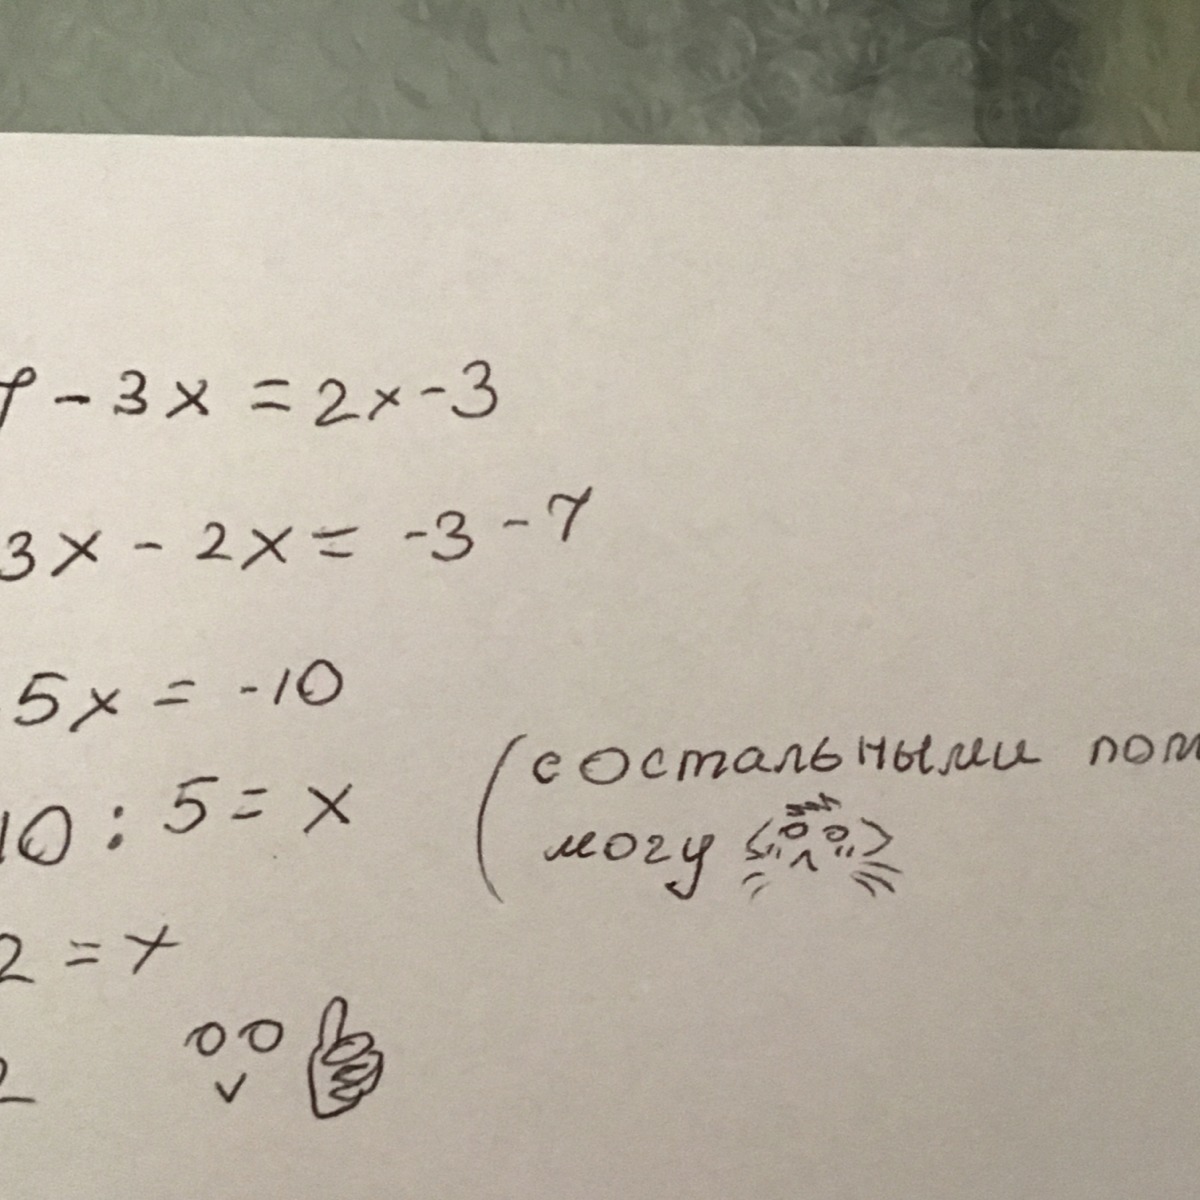 7 - 3x = 2x - 3
3x - 2x = -3 - 7
5x = -10
10 : 5 = x
(с остальными пом
могу
2 = x
2